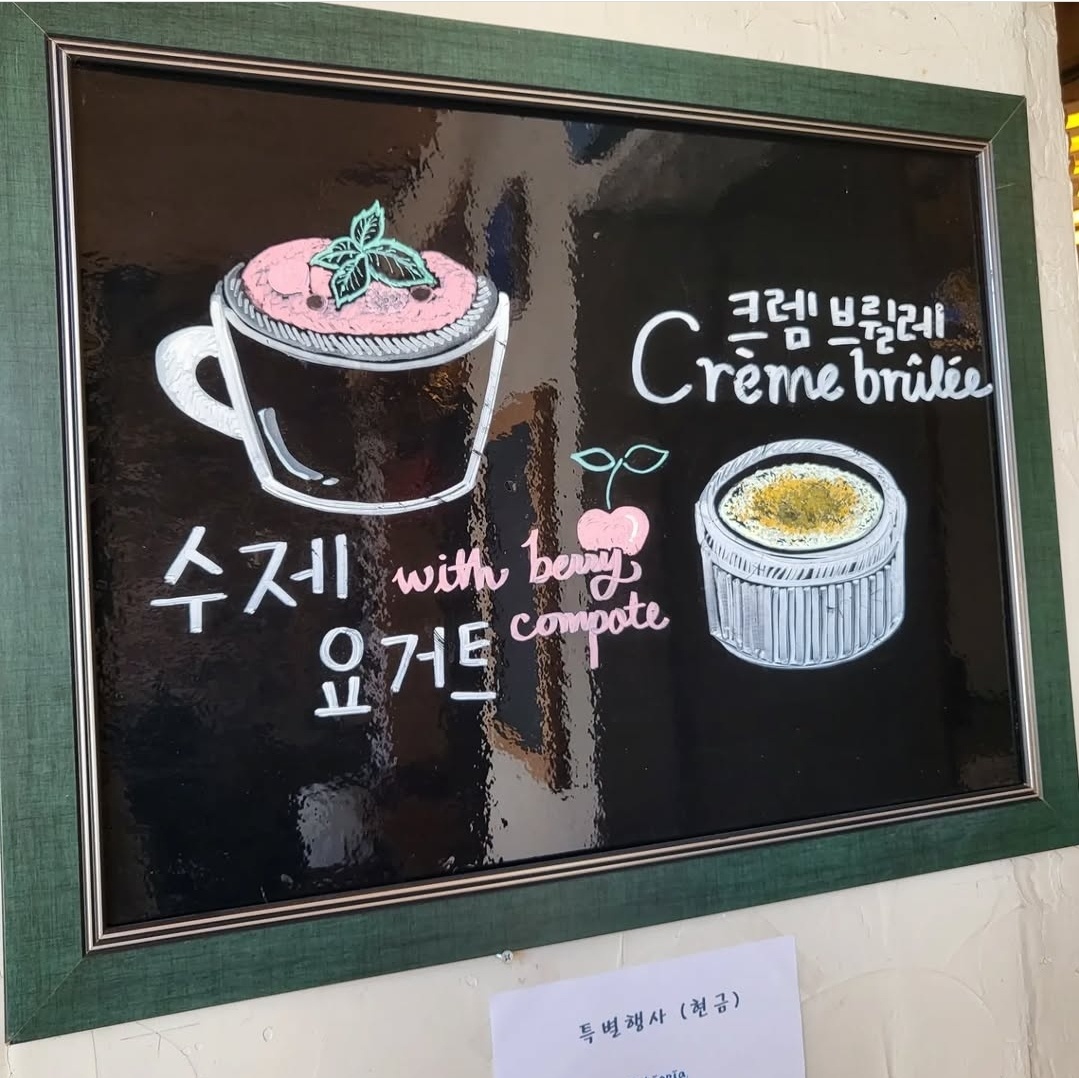 수제
요거트
with berry
compote
크렘 브륄레
Crème brûlée
특별행사 (현금)